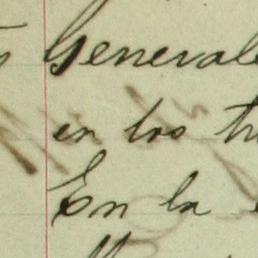 Generale
en los tr
En la